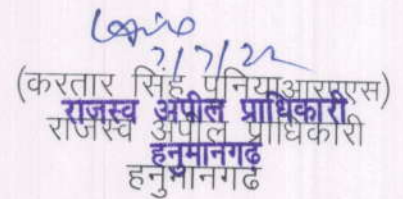 7/7/22
(करतार सिंह पुनियाआरएएस)
राजस्व अपील प्राधिकारी
राजस्व अपील प्राधिकारी
हनुमानगढ़
हनुमानगढ